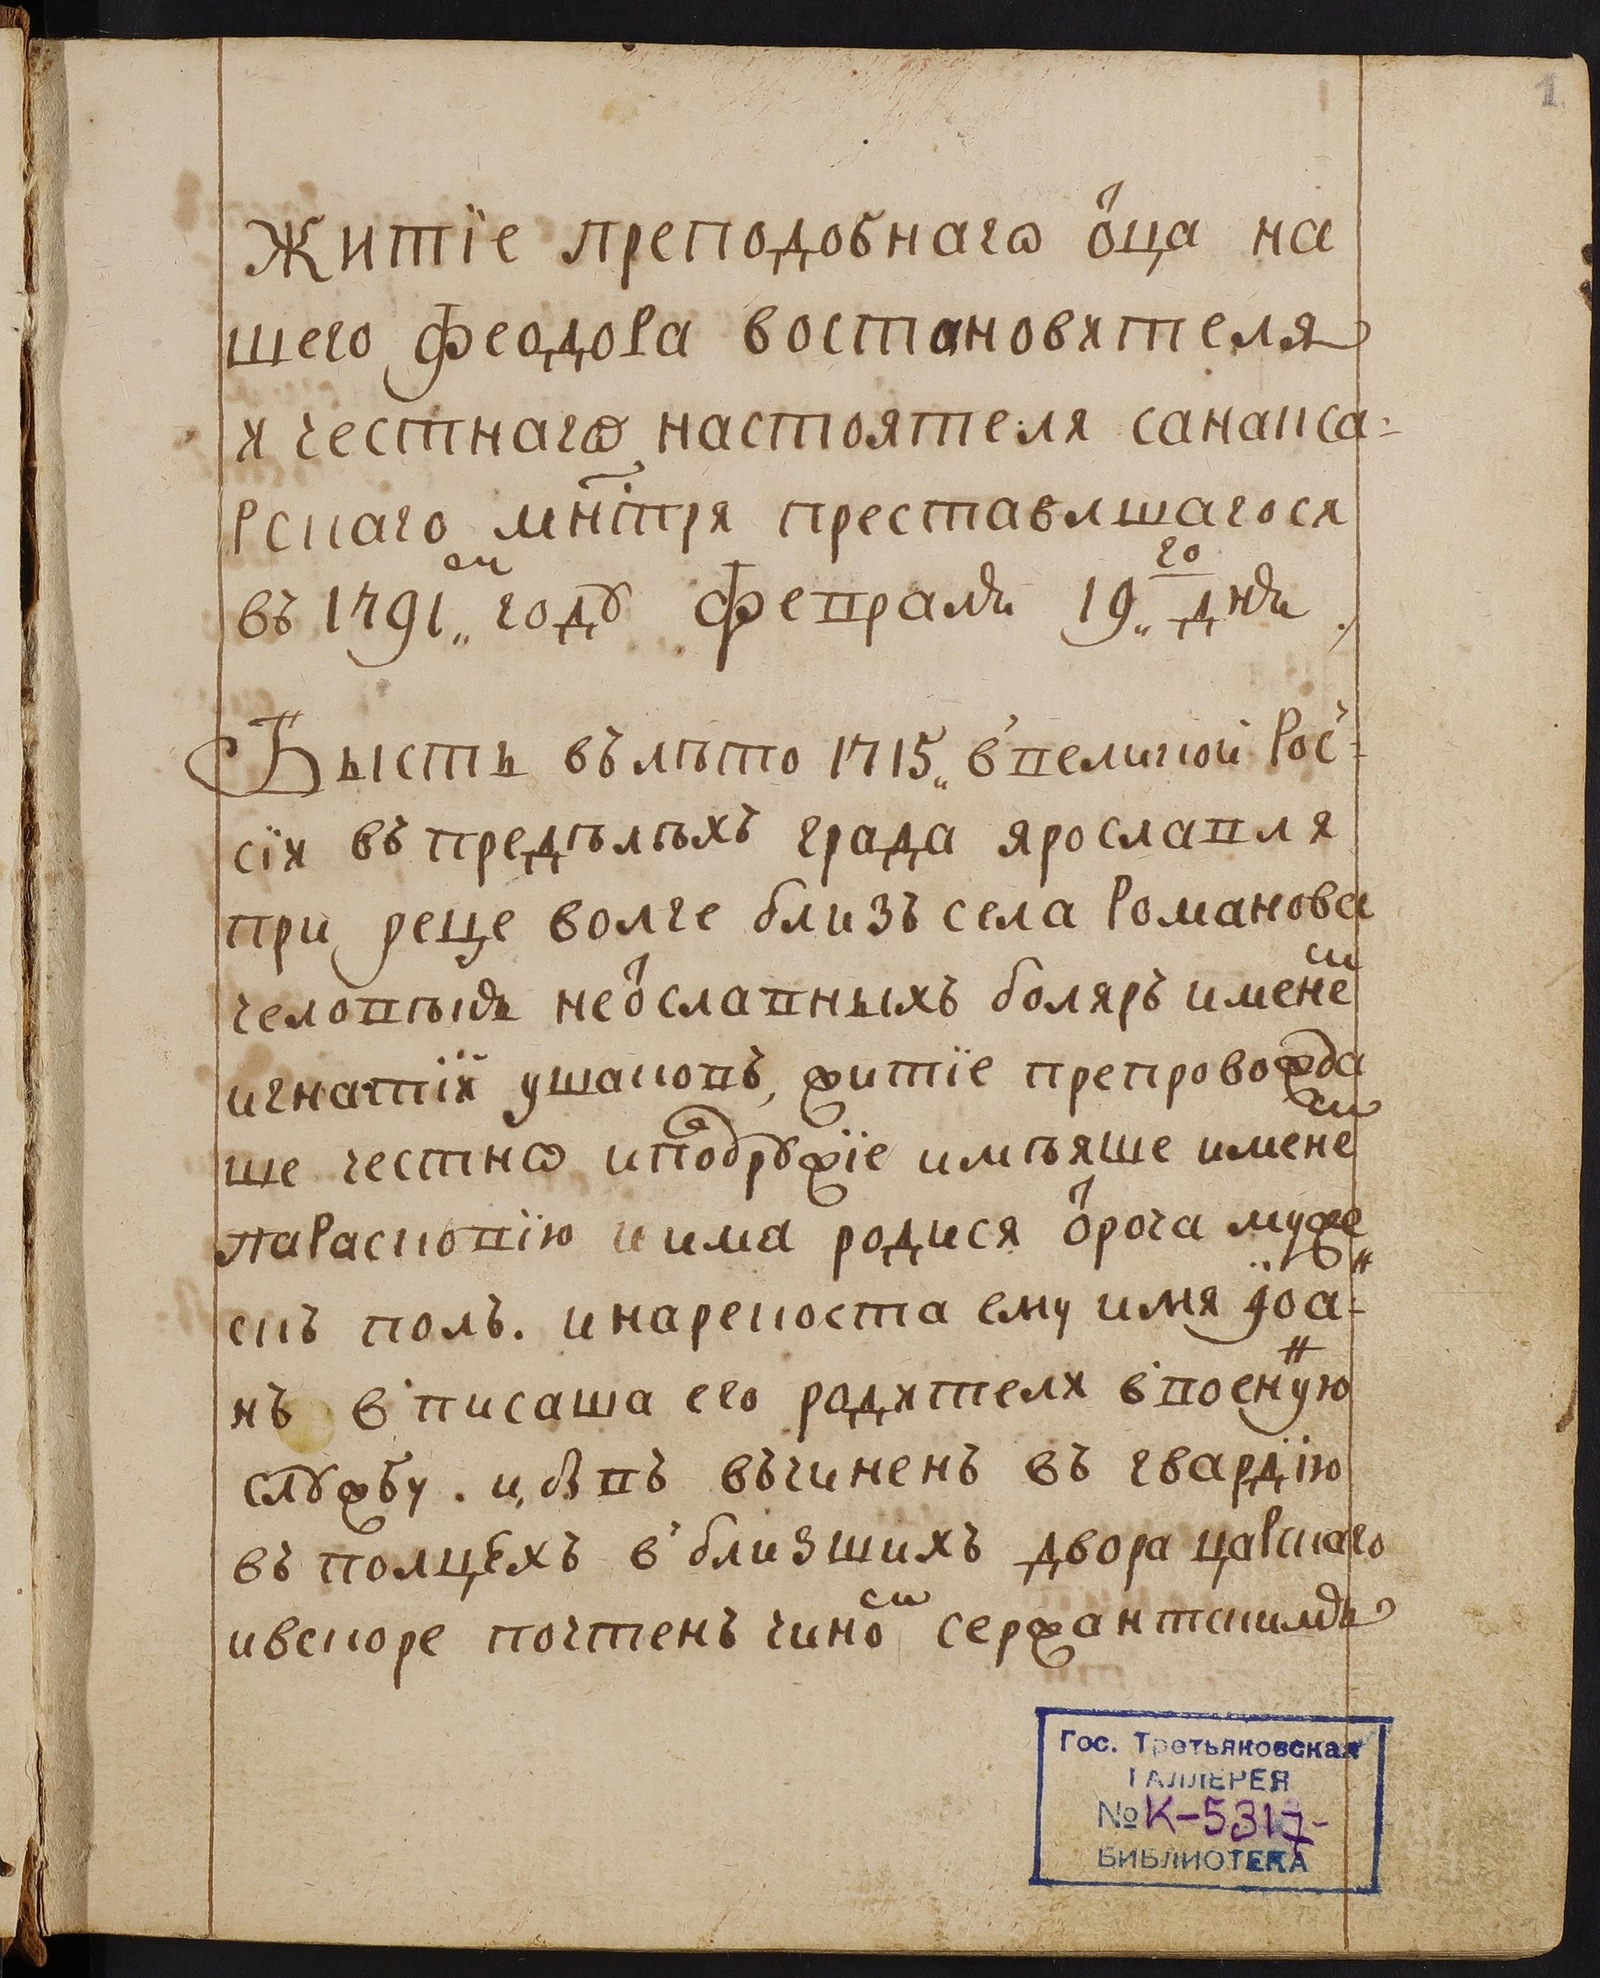 1.
Житїе преподобнагѡ ѻ҃ца на
шего феодора востановителя
и честнагѡ настоятеля санакса-
рскаго мн҃тря преставлшагося
въ 1791„ ом году февраля 19„ го дня.
Бысть въ лѣто 1715„ в'великой Рос-
сїи въ предѣлѣхъ града ярославля
при реце волге близъ села Романова
человѣкъ неѻславныхъ боляръ имене м
игнатїй ушаковъ, житїе препровожда
ше честнѡ и подружїе имѣяше имене м
парасковїю и има родися ѻроча муже
скъ полъ. и нарекоста ему имя їоа-
нъ в'писаша его родители в'воен н ую
службу. и бывъ въчиненъ въ гвардїю
въ полцѣхъ в'близшихъ двора царскаго
и вскоре почтенъ чино м сержантскимъ
Гос. Третьяковская
ГАЛЛЕРЕЯ
№ К-5317-
БИБЛИОТЕКА